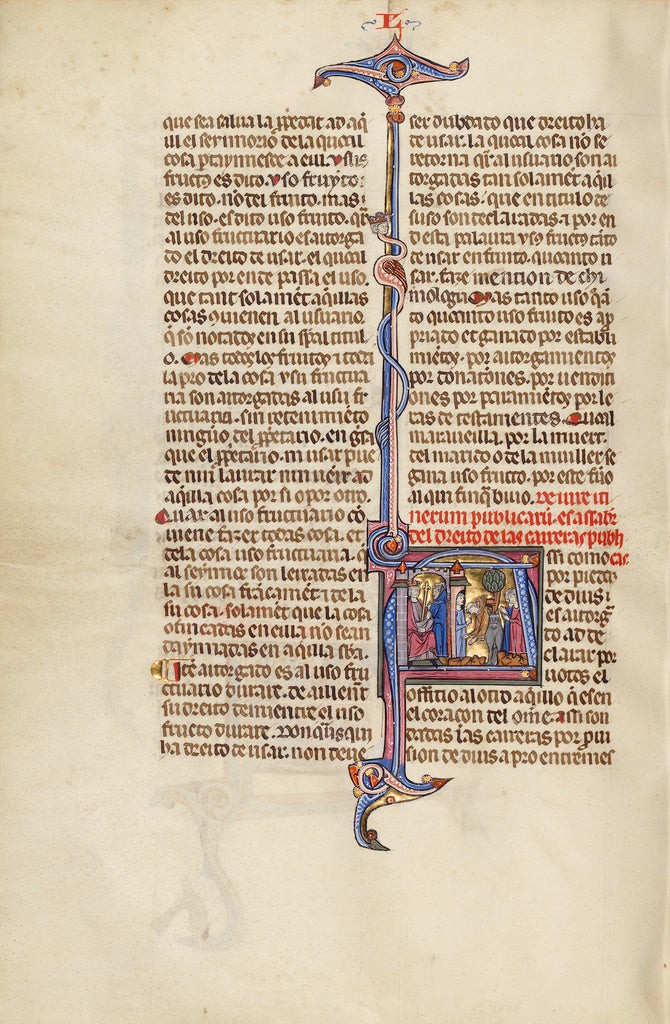 L
que sea salua la ꝓpedat ad aq̃
ill el seynnorio de la qual
cosa ꝑtaynnesce a eill. vsus
fructus es dito. vso fruyto:
es dito. no del fruito. mas
del uso. es dito uso fruito. q̃r
al uso fructuario es autorga
do el dreito de usar. el qual
dreito por ende passa el uso.
que tant solamẽt aquillas
cosas
al usuario.
q̃ sõ notados en su titul
o. Mas todos los fruitos
la pro de la cosa
ria son autorgadas al usu fr
uctuario. sin retenimiẽto
ninguno del ꝓpetario. en
que el ꝓpetario. ni usar pue
de nin laurar nin
aquilla cosa por si o por otro.
Quar al uso fructuario cõ
uiene fazer todas cosas. et
de la cosa uso fructuaria. q̃
al seynnor son leixadas en
la su cosa. frãcamẽt. de la
su cosa. solamẽt que la cosa
o fincadas en eilla no sean
daynnadas en aquilla
autorgado es al uso fru
ctuario durare. de
su dreito demientre el uso
fructo durare. Don
ha dreito de usar. non deue
ser dubdado que dreito ha
de usar. la qual cosa no se
retorna. q̃r al usuario son au
torgadas tan solamẽt aqui
llas cosas. que en titulo de
suso son declaradas. a por en
desta palaura vsus fructus
de usar en fruito. quanto
sar. faze mention de ethi
mologia. Mas tanto uso
to quanto uso fruito es ap
priado et ganado por establi
miẽtos. por autorgamientos
por donationes. por uenditi
ones por paramiẽtos por le
xas de testamientes. Qual
marauella, por la muert.
del marido o de la muller se
gana uso fructo. por este
aqui finq̃
De iure iti
nerum publicarũ. es a saber.
del dreito de las carreras publi
cas.
Assi como
por piedat
de dius
es autorga
to ad
clarar por
uotos el
offitio al otro aquillo q̃ es en
el coraçon del ome. assi son
dadas las carreras por ꝓui
sion de dius a pro entremes